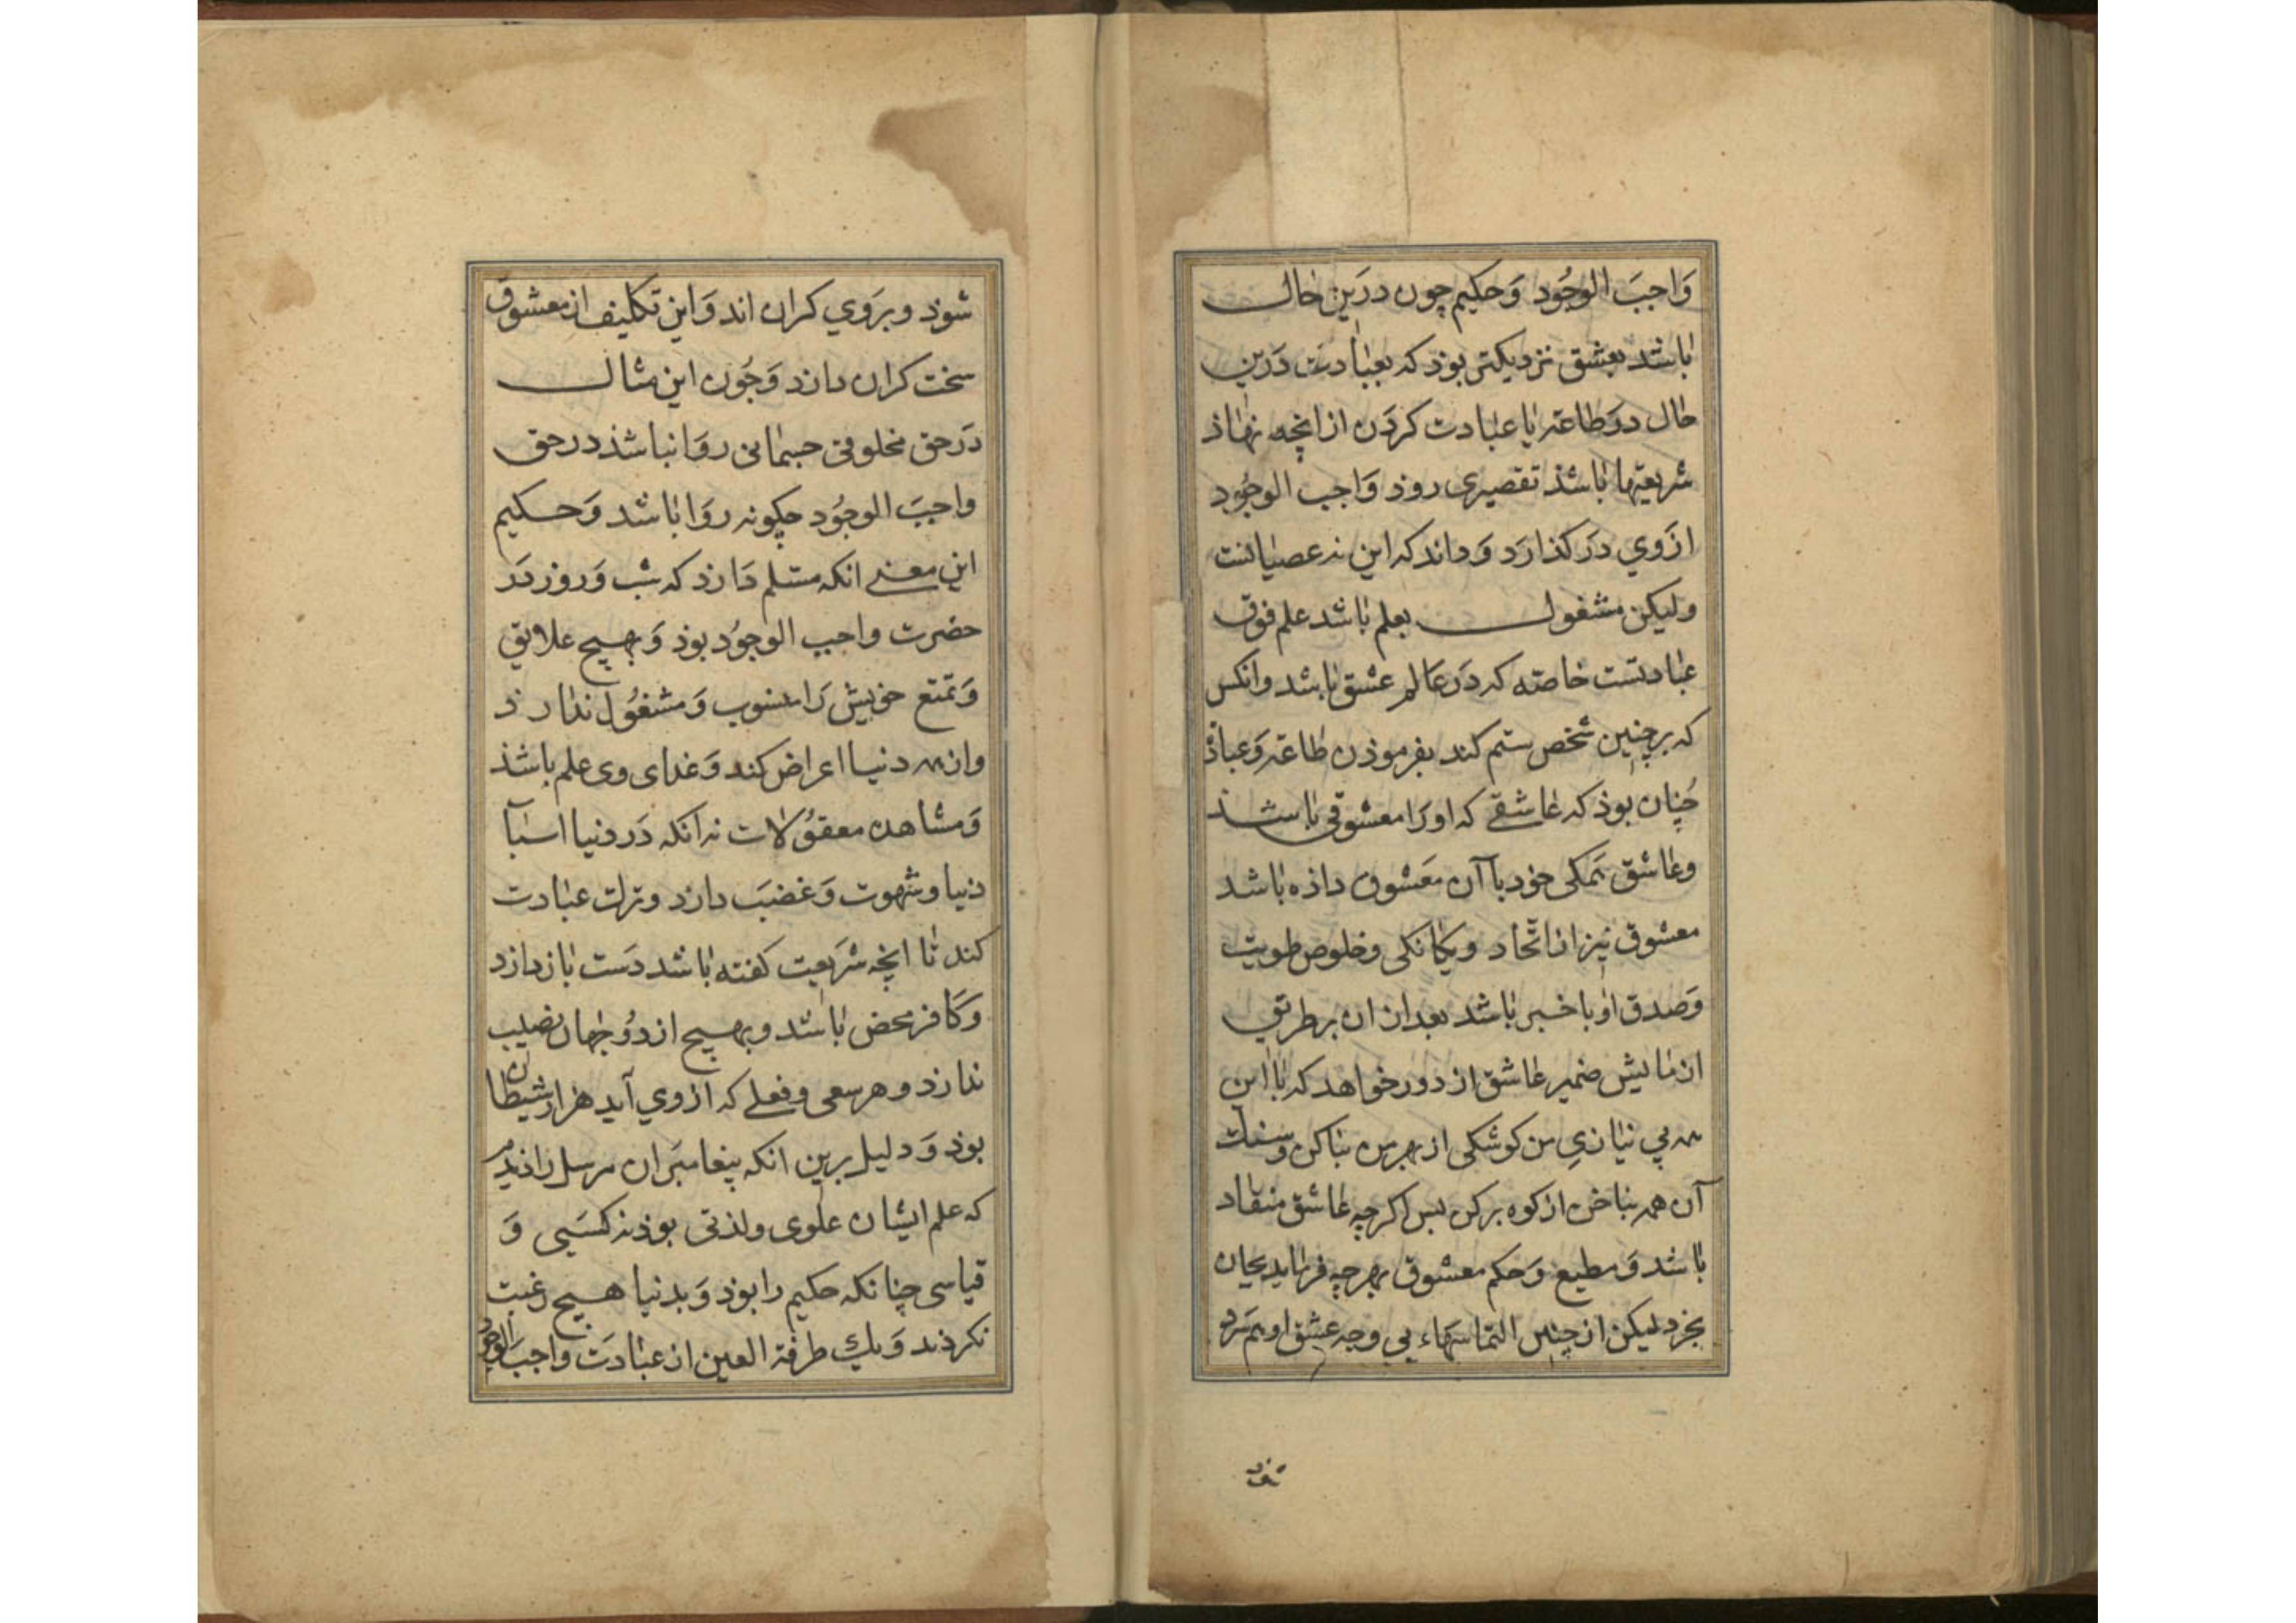 وَاجبَ الوجُود وَحکیم چون درَین حال
باشد بعشق نزدیکتر بوذ که بعبادت دَرین
حال دَرطاعة یا عبادت کردَن ازانچه نهاذ
شریعتها باشذ تقصیری روذ وَاجب الوجُود
ازوي دَرکذارَد وَداند که این نه عصیانست
ولیکن مشغول بعلم باشد علم فوق
عبادتست خاصّه که دَرعَالم عشق باشد وانکس
که برچنین شخص ستم کند بفرموذن طاعة وَعباذة
چُنان بوذ که عاشقے که اورَا معشوقی باشد
وعاشق همکی خود باآن معَشوق داذه باشد
معشوق نیز ازاتّحاد ویکانکی وخلوص طویت
وَصدق اوباخبر باشد بعدازان برطریق
ازمایش ضمیر عاشق ازدورخواهد که بااین
همه بي نیازيِ من کوشکی ازبهرمن بناکن وسنك
آن همه بناخن ازکوه برکن پس اکرچه عاشق منقاد
باشد وَمطیع وَحکم معشوق بهرچه فرماید بجان
بخرد لیکن ازچنین التماسَهاء بي وجه عشق اوهم سَرد
شوذ
شوذ وبرَوي کران اند وَاین تکلیف ازمعشوق
سخت کران دارد وَچُون این مثال
دَرحق مخلوقی جسمانی روَا نباشذ درحق
واجبَ الوجوُد چکونه روَا باشد وَحکیم
این معنے انکه مسلّم دَارد که شب وَروز دَر
حضرت واجب الوجوُد بوذ وَبهیچ علایق
وَتمتع خویش رَا منسوب وَمشغوُل نذارذ
وازهمه دنیا اعراض کند وَغذای وی علم باشذ
وَمشاهده معقوُلات نه آنکه دَر دنیا اسبآ
دنیا وشهوت وَغضبَ دارد وترك عبادت
کند تا انچه شرَیعت کفته باشد دَست بازدارد
وکَافر محض باشد وبهیچ ازدوُجهان نصیب
ندارذ وهرسعی وفعلے که ازوي آید هزارشیطان
بوذ وَدلیل برین انکه پیغامبرَان مرسل را
که علم ایشان علوی ولدنی بوذ نه کسَبی وَ
قیاسی چنانکه حکیم را بوذ وَبدنیا هیچ رغبت
نکرذند وَیك طرفة العین ازعبادَت واجبَ الوجود